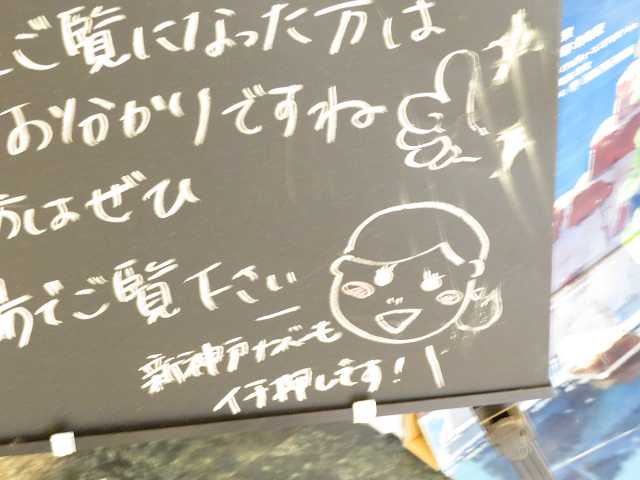 ご覧になった方は
お分かりですね
方はぜひ
場でご覧下さい
新神戸オズーも
イチ押しです!